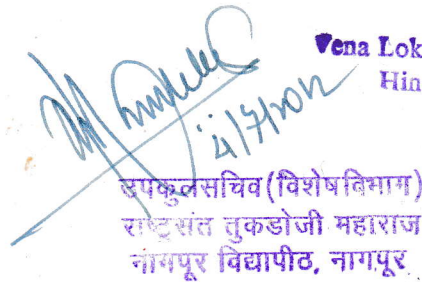 Vena Lok
Hin
4/7/2012
उपकुलसचिव (विशेष विभाग)
राष्ट्रसंत तुकडोजी महाराज
नागपूर विद्यापीठ, नागपूर